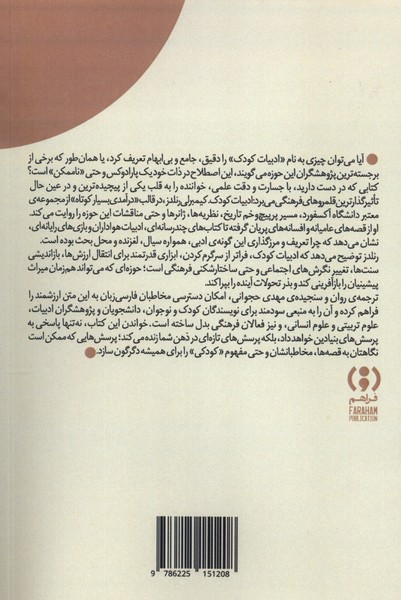 آیا می‌توان چیزی به نام «ادبیات کودک» را دقیق، جامع و بی‌ابهام تعریف کرد، یا همان‌طور که برخی از
برجسته‌ترین پژوهشگران این حوزه می‌گویند، این اصطلاح در ذات خود یک پارادوکس و حتی «ناممکن» است؟
کتابی که در دست دارید، با جسارت و دقت علمی، خواننده را به قلب یکی از پیچیده‌ترین و در عین حال
تأثیرگذارترین قلمروهای فرهنگی می‌برد: ادبیات کودک. کیمبرلی رنلدز، در قالب «درآمدی بسیار کوتاه» از مجموعه‌ی
معتبر دانشگاه آکسفورد، مسیر پرپیچ‌وخم تاریخ، نظریه‌ها، ژانرها و حتی مناقشات این حوزه را روایت می‌کند.
او از قصه‌های عامیانه و افسانه‌های پریان گرفته تا کتاب‌های چندرسانه‌ای، ادبیات هواداران و بازی‌های رایانه‌ای،
نشان می‌دهد که چرا تعریف و مرزگذاری این گونه‌ی ادبی، همواره سیال، لغزنده و محل بحث بوده است.
رنلدز توضیح می‌دهد که ادبیات کودک، فراتر از سرگرم کردن، ابزاری قدرتمند برای انتقال ارزش‌ها، بازاندیشی
سنت‌ها، تغییر نگرش‌های اجتماعی و حتی ساختارشکنی فرهنگی است؛ حوزه‌ای که می‌تواند هم‌زمان میراث
پیشینیان را بازآفرینی کند و بذر تحولات آینده را بپرورد.
ترجمه‌ی روان و سنجیده‌ی مهدی حجوانی، امکان دسترسی مخاطبان فارسی‌زبان به این متن ارزشمند را
فراهم کرده و آن را به منبعی سودمند برای نویسندگان کودک و نوجوان، دانشجویان و پژوهشگران ادبیات،
علوم تربیتی و علوم انسانی، و نیز فعالان فرهنگی بدل ساخته است. خواندن این کتاب، نه‌تنها پاسخی به
پرسش‌های بنیادین خواهد داد، بلکه پرسش‌های تازه‌ای در ذهن شما زنده می‌کند؛ پرسش‌هایی که ممکن است
نگاهتان به قصه‌ها، مخاطبانشان و حتی مفهوم «کودکی» را برای همیشه دگرگون سازد.
فراهم
FARAHAM
PUBLICATION
9 786225 151208